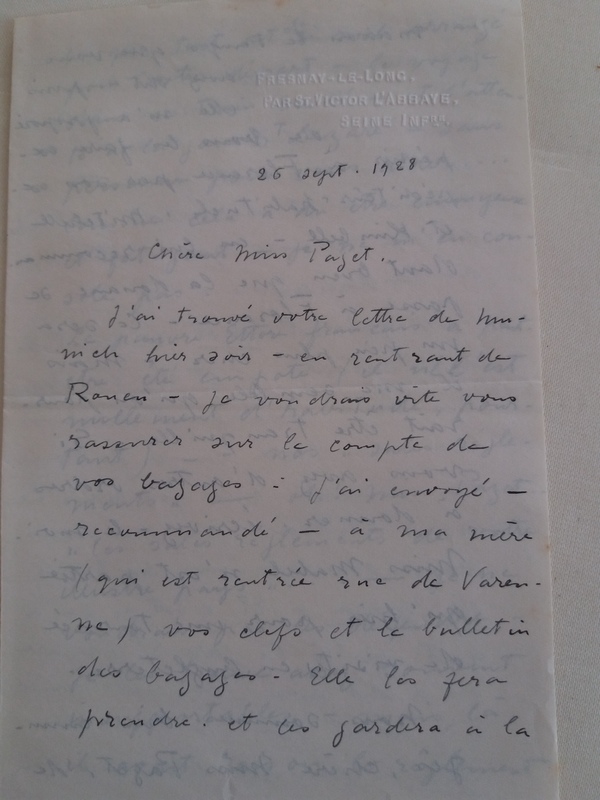 FRESNAY-LE-LONG,
PAR ST. VICTOR L'ABBAYE,
SEINE INFRE.
26 sept. 1928
Chère Miss Paget.
J'ai trouvé votre lettre de Mu-
nich hier soir – en rentrant de
Rouen – Je voudrais vite vous
rassurer sur le compte de
vos bagages : J'ai envoyé –
recommandé – à ma mère
(qui est rentrée rue de Varen-
ne) vos clefs et le bulletin
des bagages. Elle les fera
prendre. et les gardera à la